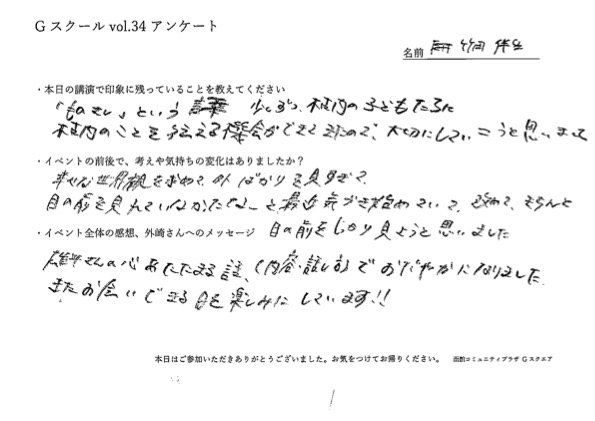 G スクール vol.34 アンケート
名前
・本日の講演で印象に残っていることを教えてください
「ものさし」という 少しずつ、村内の子どもたちに
村内のことを伝える機会ができてきたので、大切にしていこうと思います
・イベントの前後で、考えや気持ちの変化はありましたか？
幸せな世界観を求めて、外ばかりを見すぎて、
目の前を見れていなかったなーと最近気づき始めていて、改めて、きちんと
・イベント全体の感想、外崎さんへのメッセージ 目の前をしっかり見ようと思いました
さんの心あたたまる話、(内容・話し方)でおだやかになりました。
またお会いできる日を楽しみにしています!!
本日はご参加いただきありがとうございました。お気をつけてお帰りください。 コミュニティプラザ G スクエア